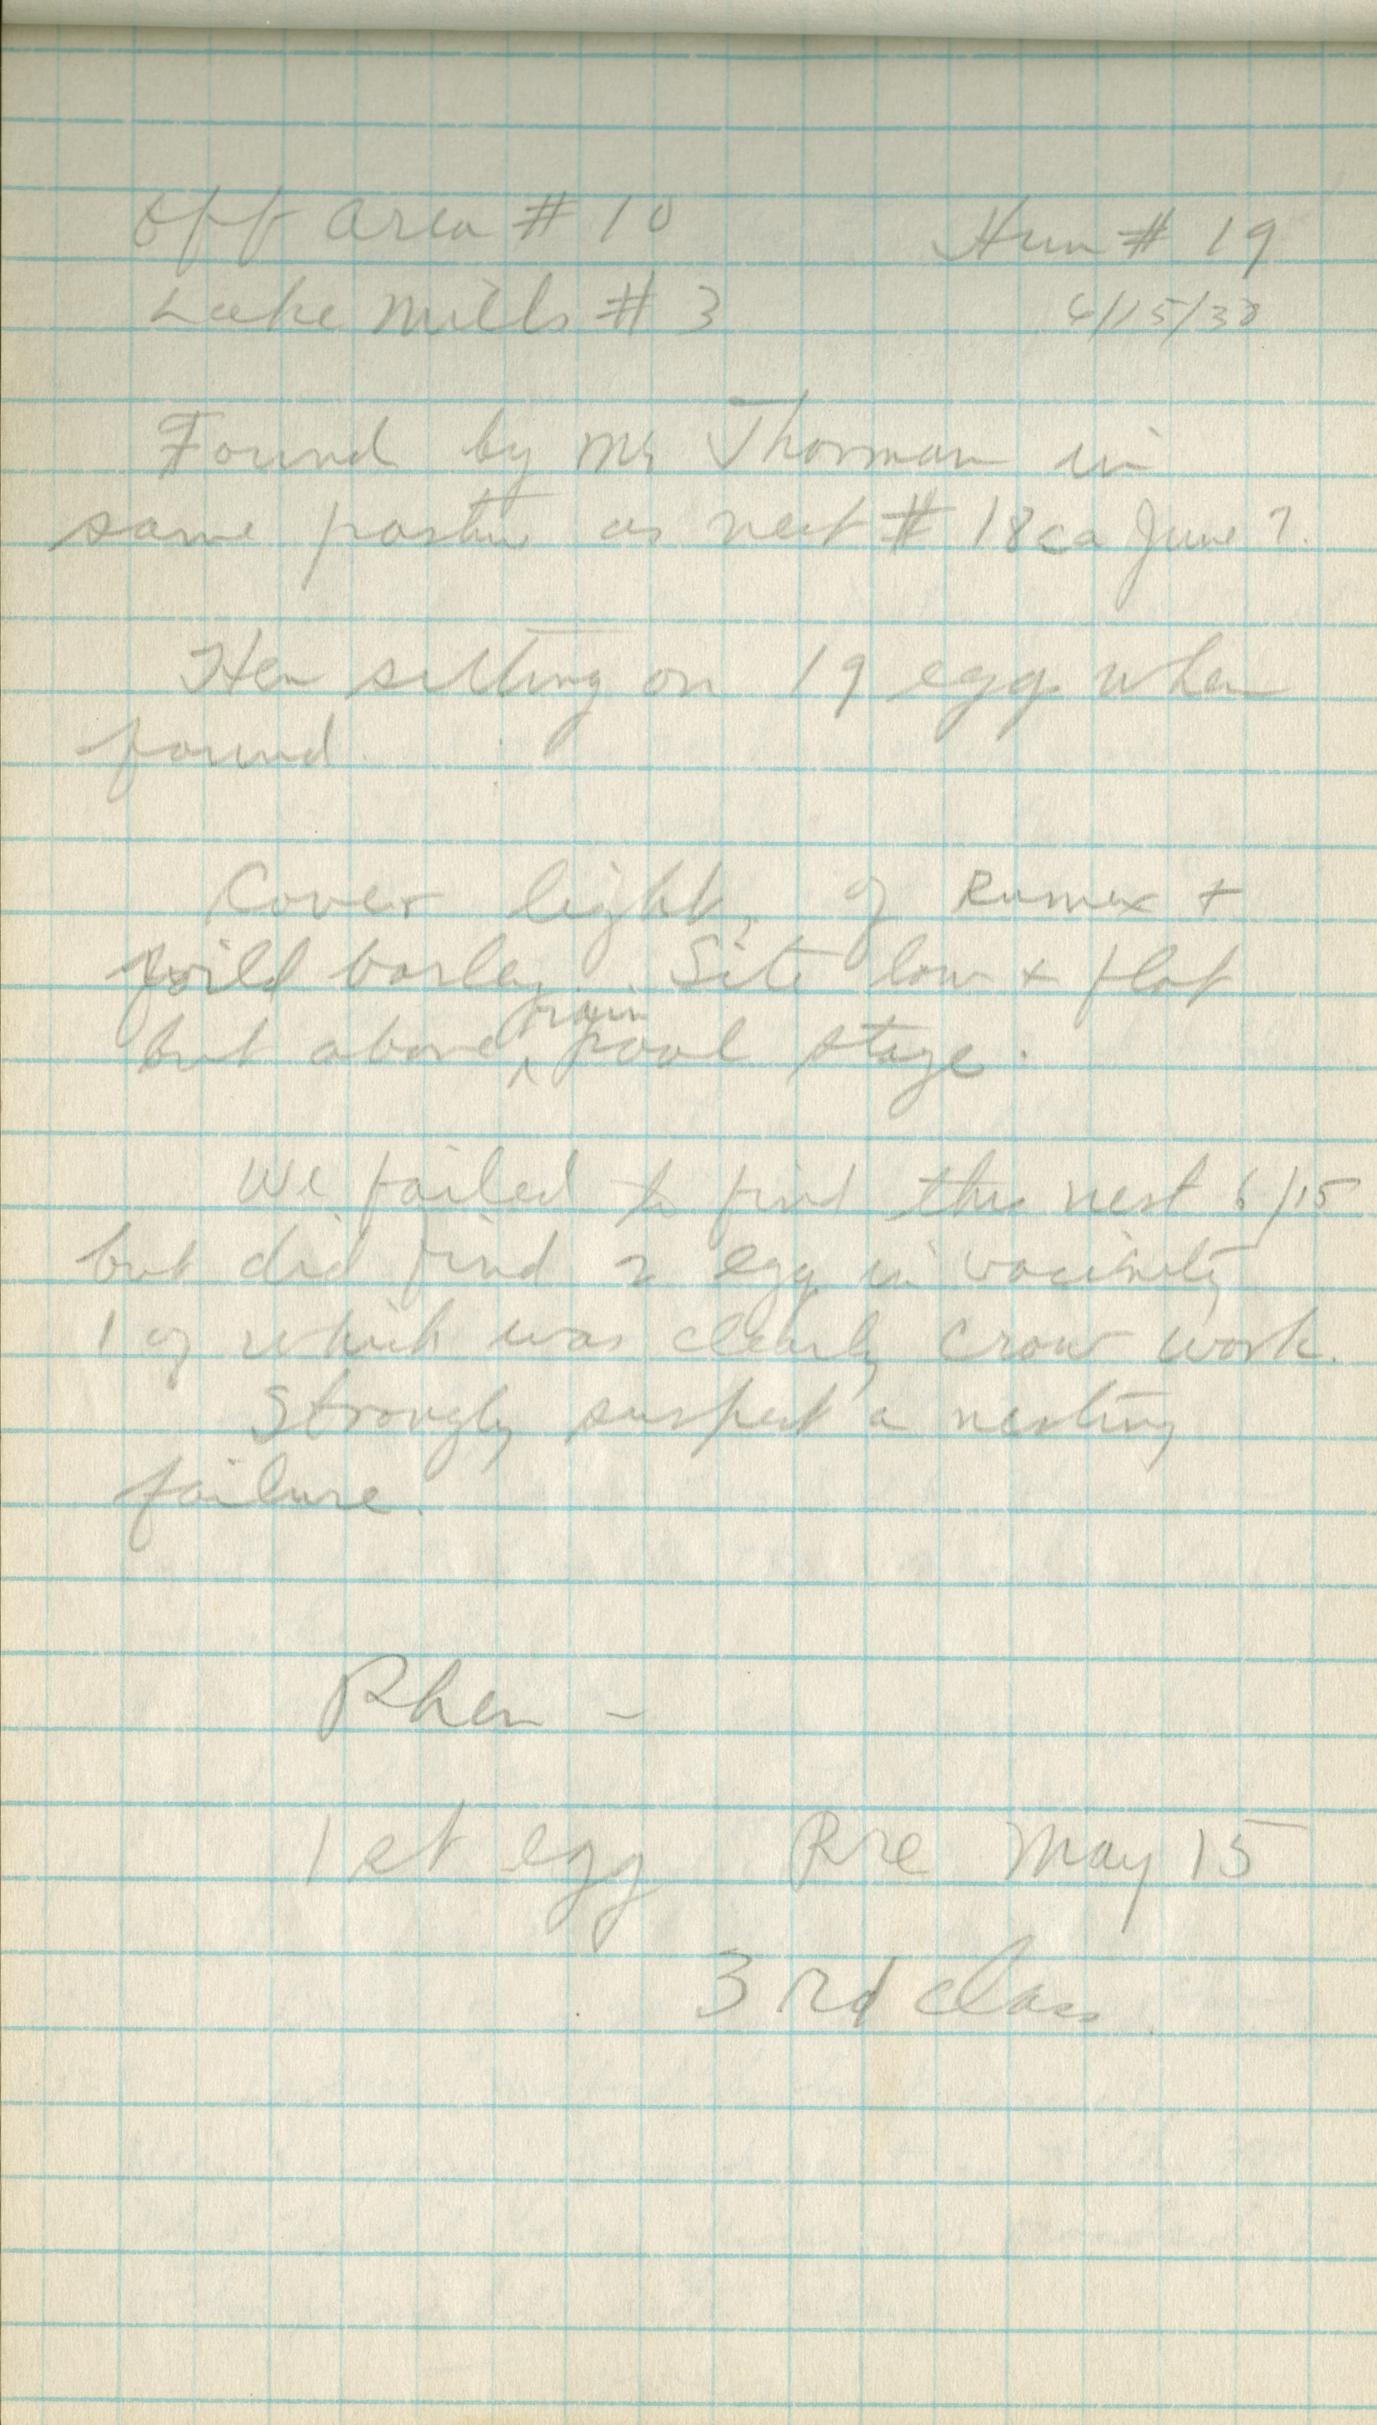 Off area # 10 Hun # 19
Lake Mills # 3 6/15/38
Found by Mr Thorman in
same pasture as nest # 18 ca June 7.
Hen sitting on 19 eggs when
found.
Cover light, of Rumex +
wild barley. Site low + flat
but above rain pool stage.
We failed to find this nest 6/15
but did find 2 eggs in vacinity
1 of which was clearly crow work.
Strongly suspect a nesting
failure.
Phen -
1st egg Pre May 15
3rd class